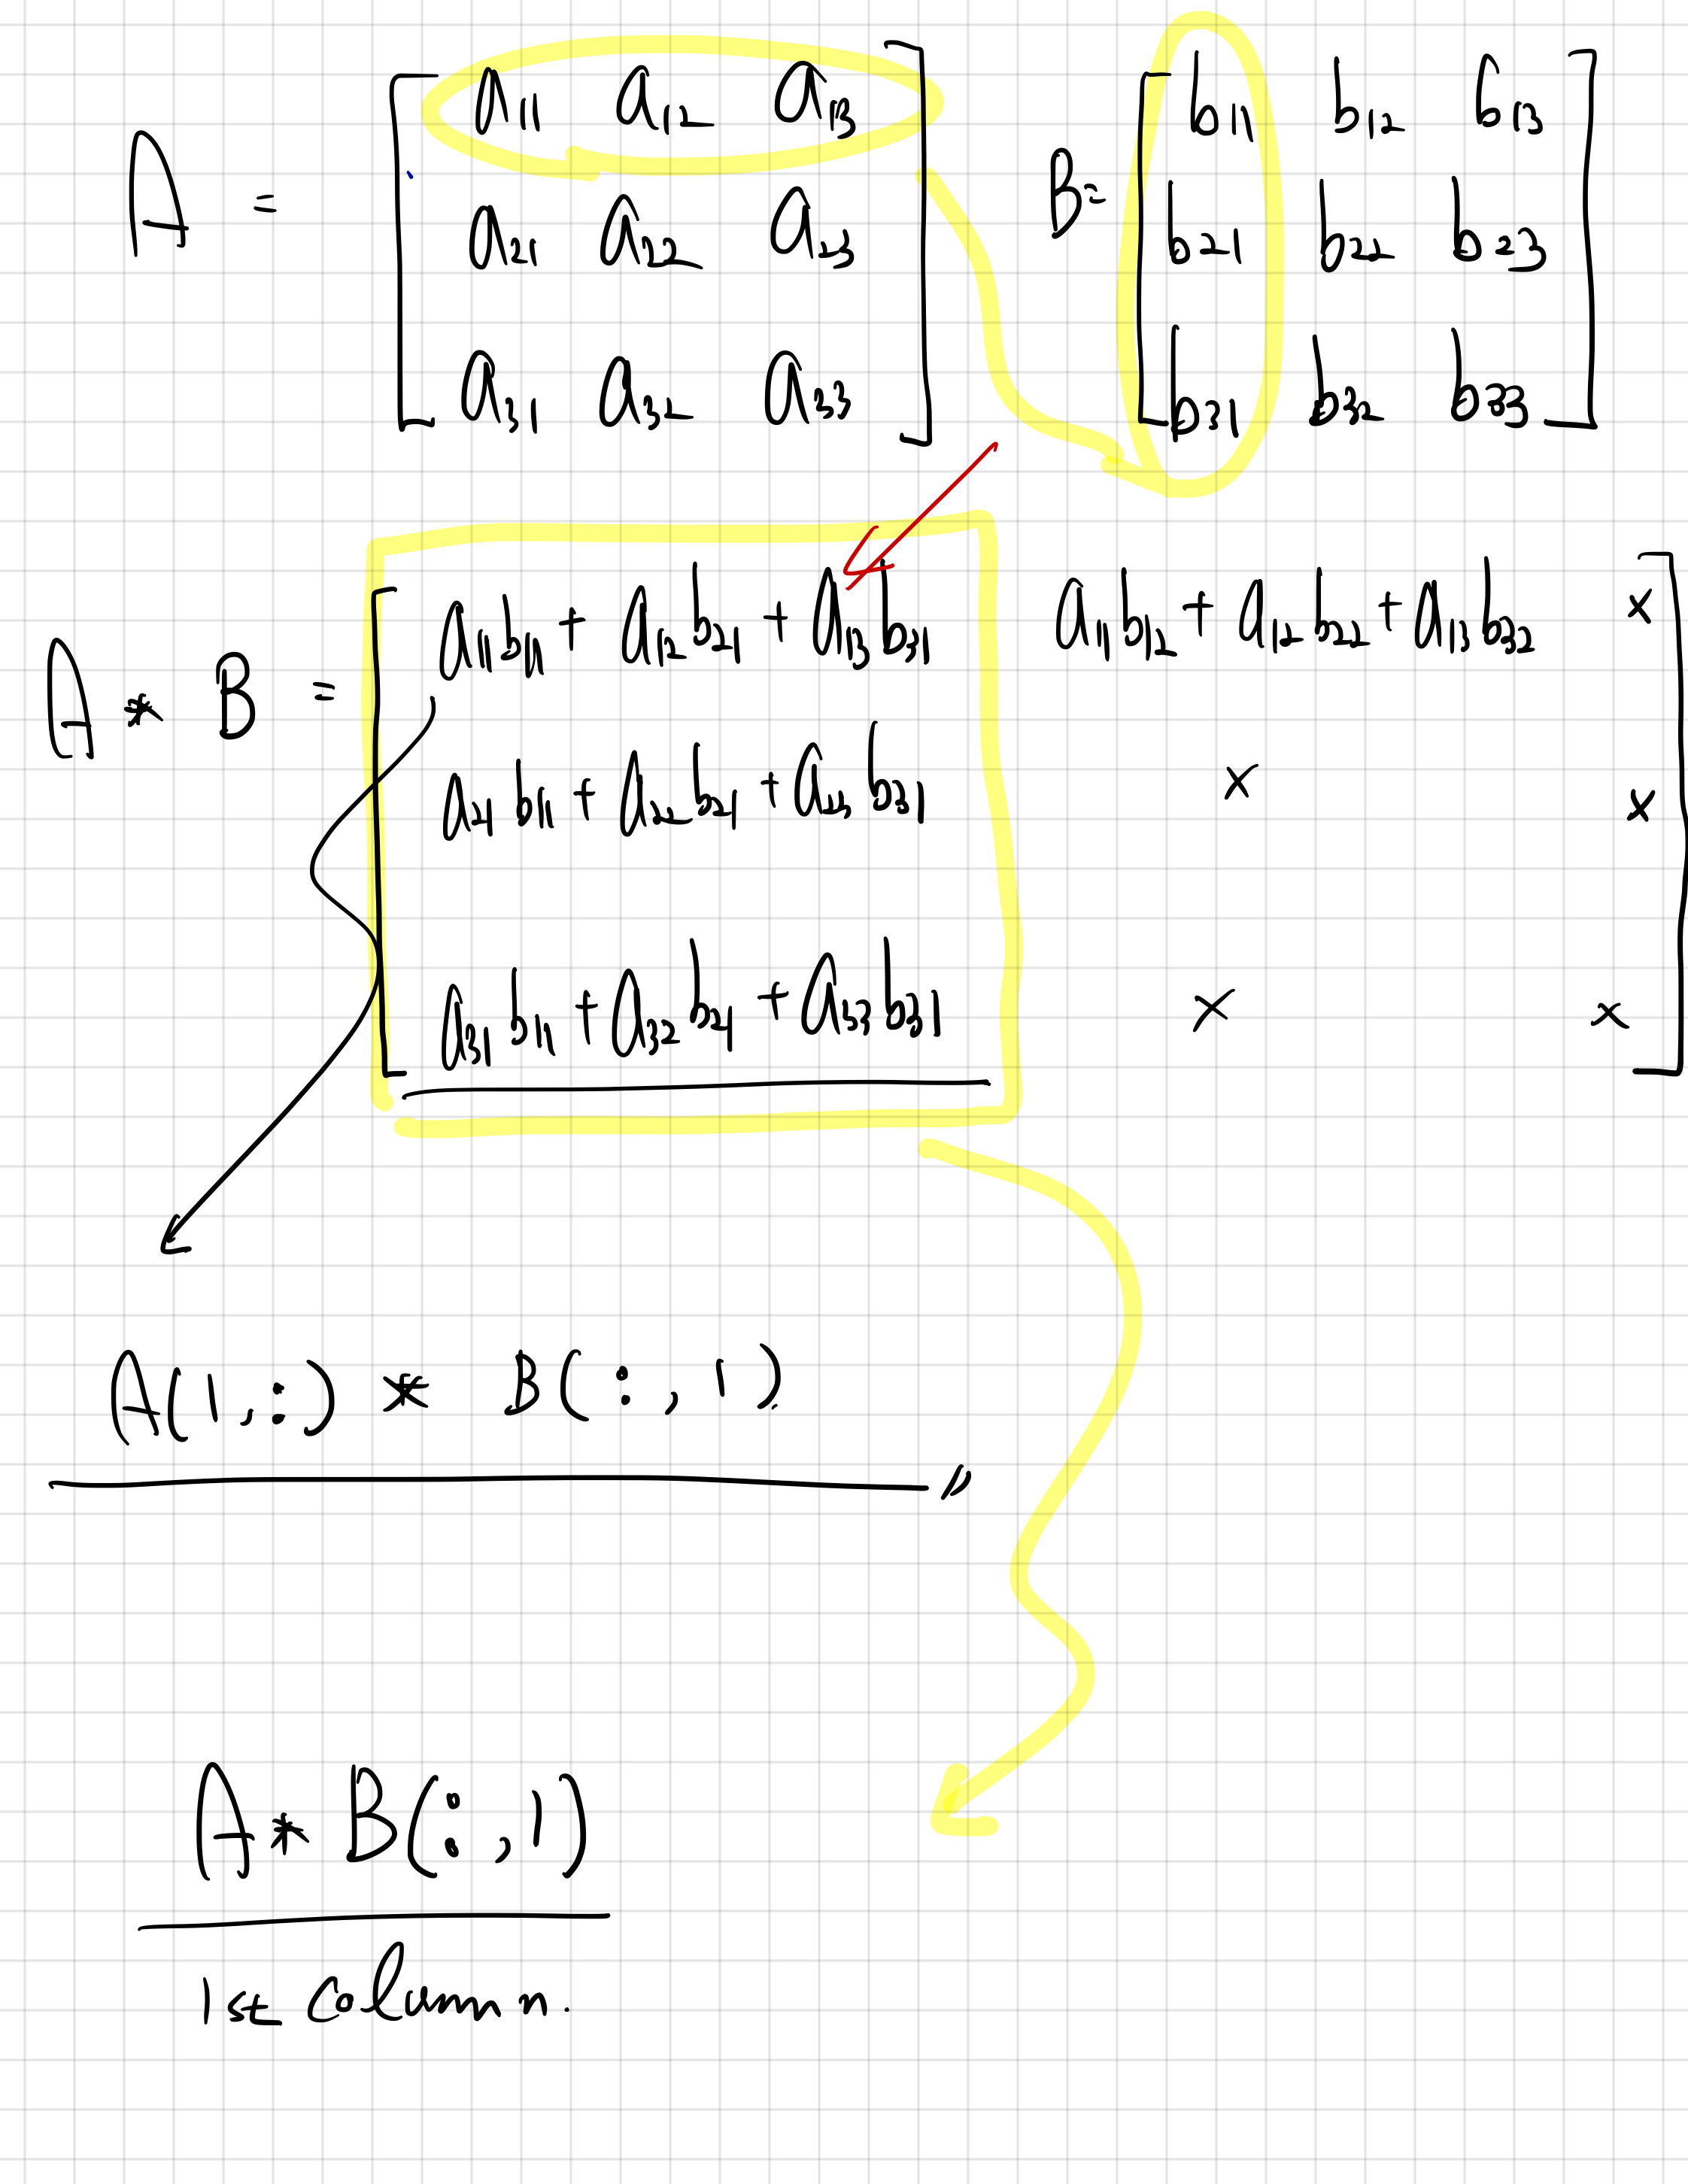 A = [ a11 a12 a13
a21 a22 a23
a31 a32 a33 ]
B = [ b11 b12 b13
b21 b22 b23
b31 b32 b33 ]
A * B = [ a11b11 + a12b21 + a13b31 a11b12 + a12b22 + a13b32 x
a21b11 + a22b21 + a23b31 x x
a31b11 + a32b21 + a33b31 x x ]
A(1,:) * B(:,1)
A * B(:,1)
1st column.